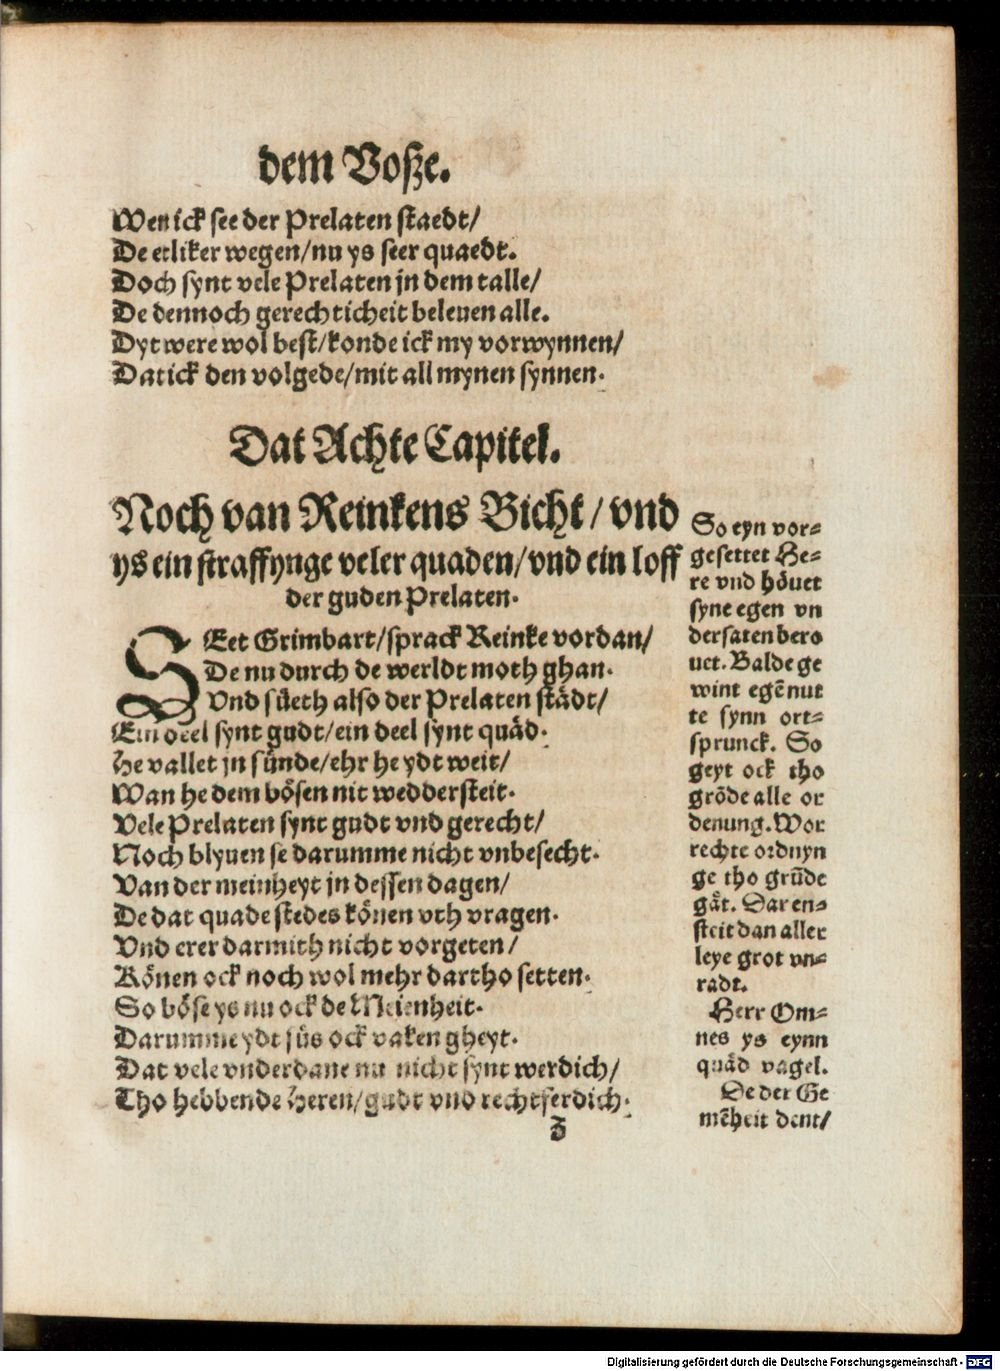 dem Voße.
Wen ick see der Prelaten staedt/
De etliker wegen/nu ys seer quaedt.
Doch synt vele Prelaten jn dem talle/
De dennoch gerechticheit beleuen alle.
Dyt were wol best/konde ick my vorwynnen/
Dat ick den volgede/mit all mynen synnen.
Dat Achte Capitel.
Noch van Reinkens Bicht/vnd
ys ein straffynge veler quaden/vnd ein loff
der guden Prelaten.
SEet Grimbart/sprack Reinke vordan/
De nu durch de werldt moth ghan.
Vnd süeth also der Prelaten städt/
Ein deel synt gudt/ein deel synt quäd.
He vallet jn sünde/ehr he ydt weit/
Wan he dem bösen nit weddersteit.
Vele Prelaten synt gudt vnd gerecht/
Noch blyuen se darumme nicht vnbesecht.
Van der meinheyt jn dessen dagen/
De dat quade stedes könen vth vragen.
Vnd erer darmith nicht vorgeten/
Können ock noch wol mehr dartho setten.
So böse ys nu ock de Meienheit.
Darumme ydt süs ock vaken gheyt.
Dat vele vnderdane nu nicht synt werdich/
Tho hebbende Heren/gudt vnd rechtferdich.
z
So eyn vor=
gesettet He=
re vnd höuet
syne egen vn
dersaten bero
uet. Balde ge
wint egẽ nut
te synn ort=
sprunck. So
geyt ock tho
grõde alle or
denung. Wor
rechte ordnyn
ge tho grũde
gät. Dar en=
steit dan aller
leye grot vn=
radt.
Herr Om=
nes ys eynn
quäd vagel.
De der Ge
mẽheit dent/
Digitalisierung gefördert durch die Deutsche Forschungsgemeinschaft - DFG